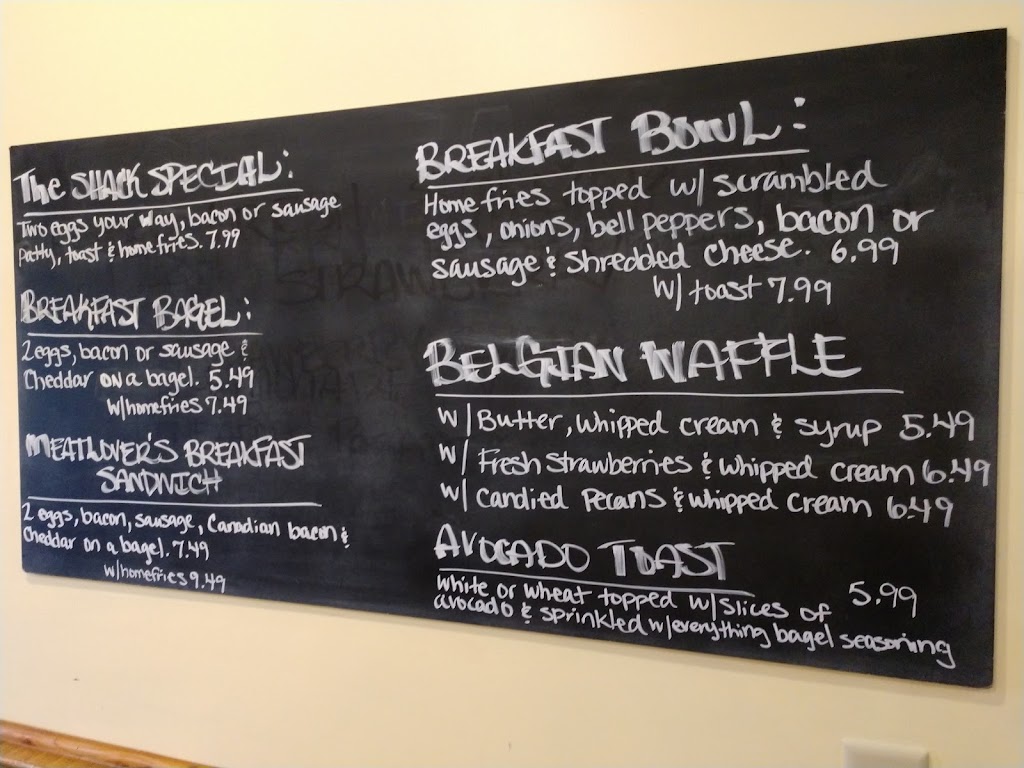 The SHACK SPECIAL:
Two eggs your way, bacon or sausage
patty, toast & homefries. 7.99
BREAKFAST BAGEL:
2 eggs, bacon or sausage &
Cheddar on a bagel. 5.49
w/homefries 7.49
MEATLOVER'S BREAKFAST
SANDWICH
2 eggs, bacon, sausage, Canadian bacon &
Cheddar on a bagel. 7.49
w/homefries 9.49
BREAKFAST BOWL:
Home fries topped w/ scrambled
eggs, onions, bell peppers, bacon or
sausage & shredded cheese. 6.99
w/ toast 7.99
BELGIAN WAFFLE
w/ Butter, whipped cream & syrup 5.49
w/ Fresh strawberries & whipped cream 6.49
w/ candied pecans & whipped cream 6.49
AVOCADO TOAST
white or wheat topped w/ slices of 5.99
avocado & sprinkled w/everything bagel seasoning